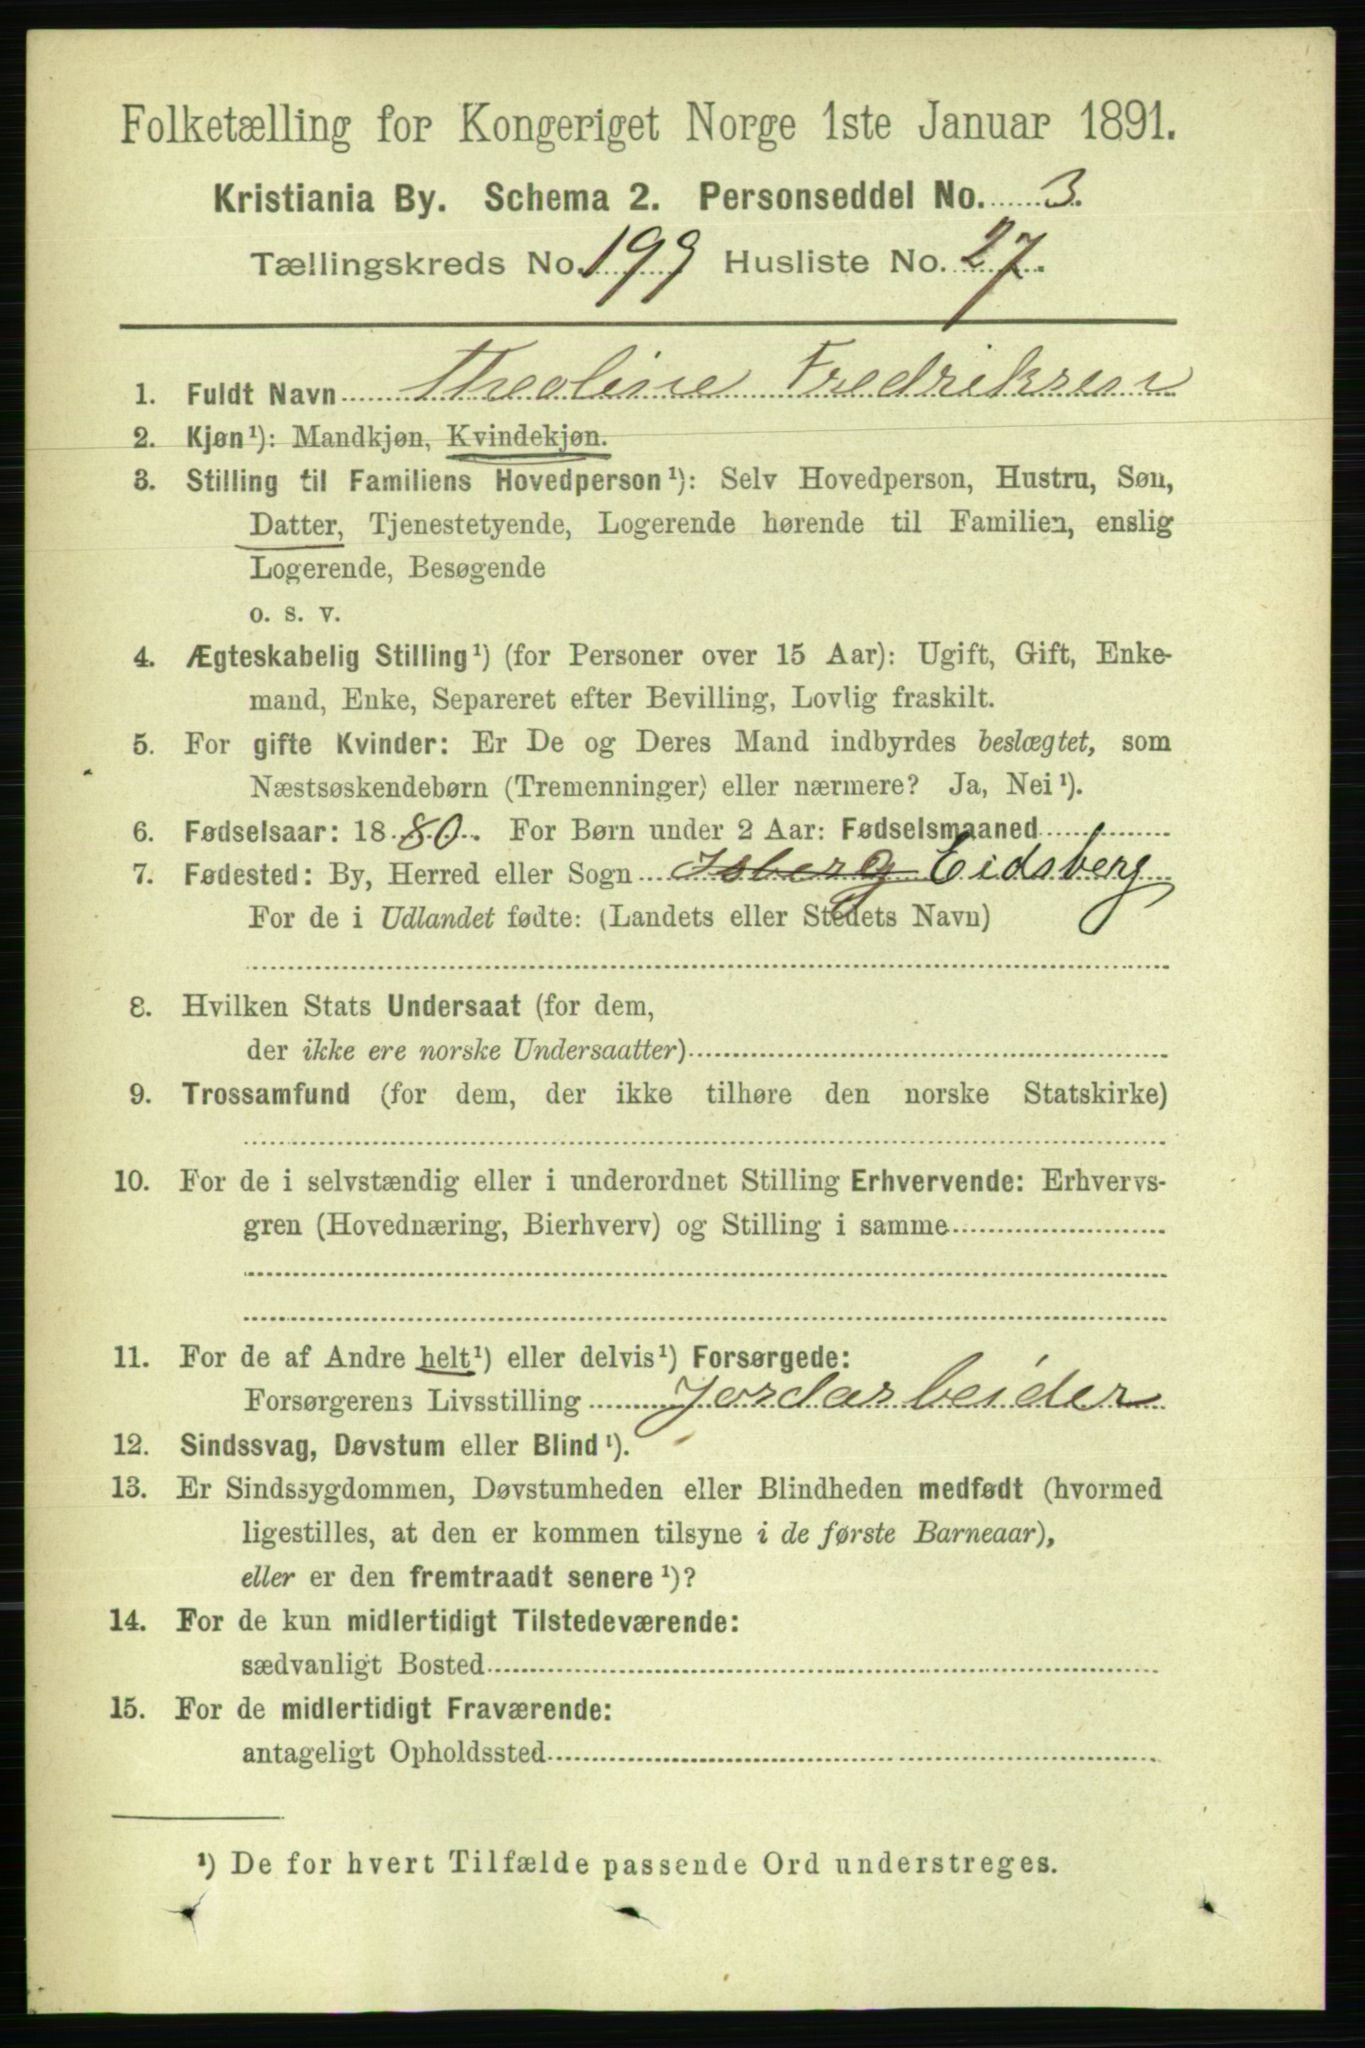 Folketælling for Kongeriget Norge 1ste Januar 1891.
Kristiania By. Schema 2. Personseddel No. 3.
Tællingskreds No. 199 Husliste No. 27.
1. Fuldt Navn Theoline Fredriksen
2. Kjøn¹): Mandkjøn, Kvindekjøn.
3. Stilling til Familiens Hovedperson¹): Selv Hovedperson, Hustru, Søn,
Datter, Tjenestetyende, Logerende hørende til Familien, enslig
Logerende, Besøgende
o. s. v.
4. Ægteskabelig Stilling¹) (for Personer over 15 Aar): Ugift, Gift, Enke-
mand, Enke, Separeret efter Bevilling, Lovlig fraskilt.
5. For gifte Kvinder: Er De og Deres Mand indbyrdes beslægtet, som
Næstsøskendebørn (Tremenninger) eller nærmere? Ja, Nei¹).
6. Fødselsaar: 1880. For Børn under 2 Aar: Fødselsmaaned
7. Fødested: By, Herred eller Sogn Isberg Eidsberg
For de i Udlandet fødte: (Landets eller Stedets Navn)
8. Hvilken Stats Undersaat (for dem,
der ikke ere norske Undersaatter)
9. Trossamfund (for dem, der ikke tilhøre den norske Statskirke)
10. For de i selvstændig eller i underordnet Stilling Erhvervende: Erhvervs-
gren (Hovednæring, Bierhverv) og Stilling i samme
11. For de af Andre helt¹) eller delvis¹) Forsørgede:
Forsørgerens Livsstilling Jordarbeider
12. Sindssvag, Døvstum eller Blind¹).
13. Er Sindssygdommen, Døvstumheden eller Blindheden medfødt (hvormed
ligestilles, at den er kommen tilsyne i de første Barneaar),
eller er den fremtraadt senere¹)?
14. For de kun midlertidigt Tilstedeværende:
sædvanligt Bosted
15. For de midlertidigt Fraværende:
antageligt Opholdssted
¹) De for hvert Tilfælde passende Ord understreges.